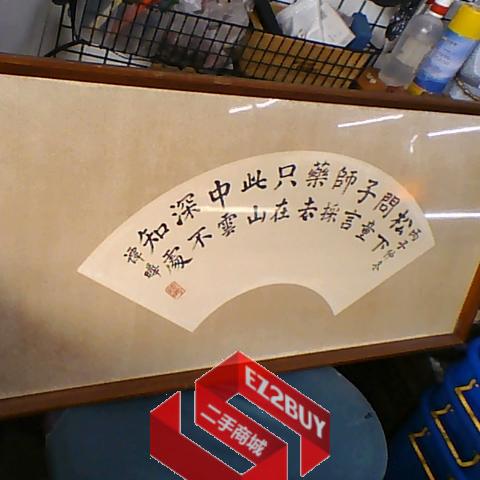 松下
問童
子言
師採
藥去
只在
此山
中雲
深不
知處
EZ2BUY
二手商城